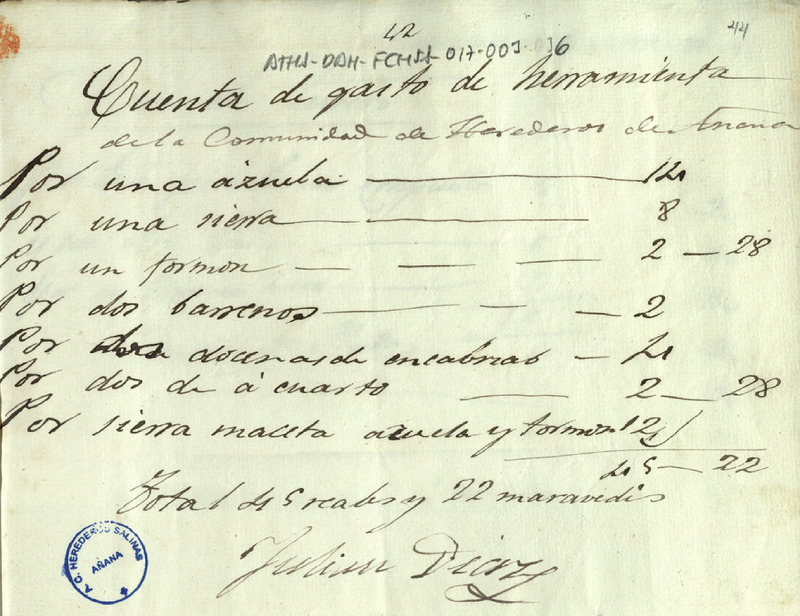 42
44
ATHA-DAH-FCHSA-017-003-036
Cuenta de gasto de herramienta
de la Comunidad de Herederos de Añana
Por una azuela 14
Por una sierra 8
Por un formon 2 - 28
Por dos barrenos 2
Por dos docenas de encabrias - 4
Por dos de á cuarto 2 - 28
Por sierra maceta azuela y formon 12
45 - 22
Total 45 reales y 22 maravedis
Julian Diaz
A.C. HEREDEROS SALINAS
AÑANA